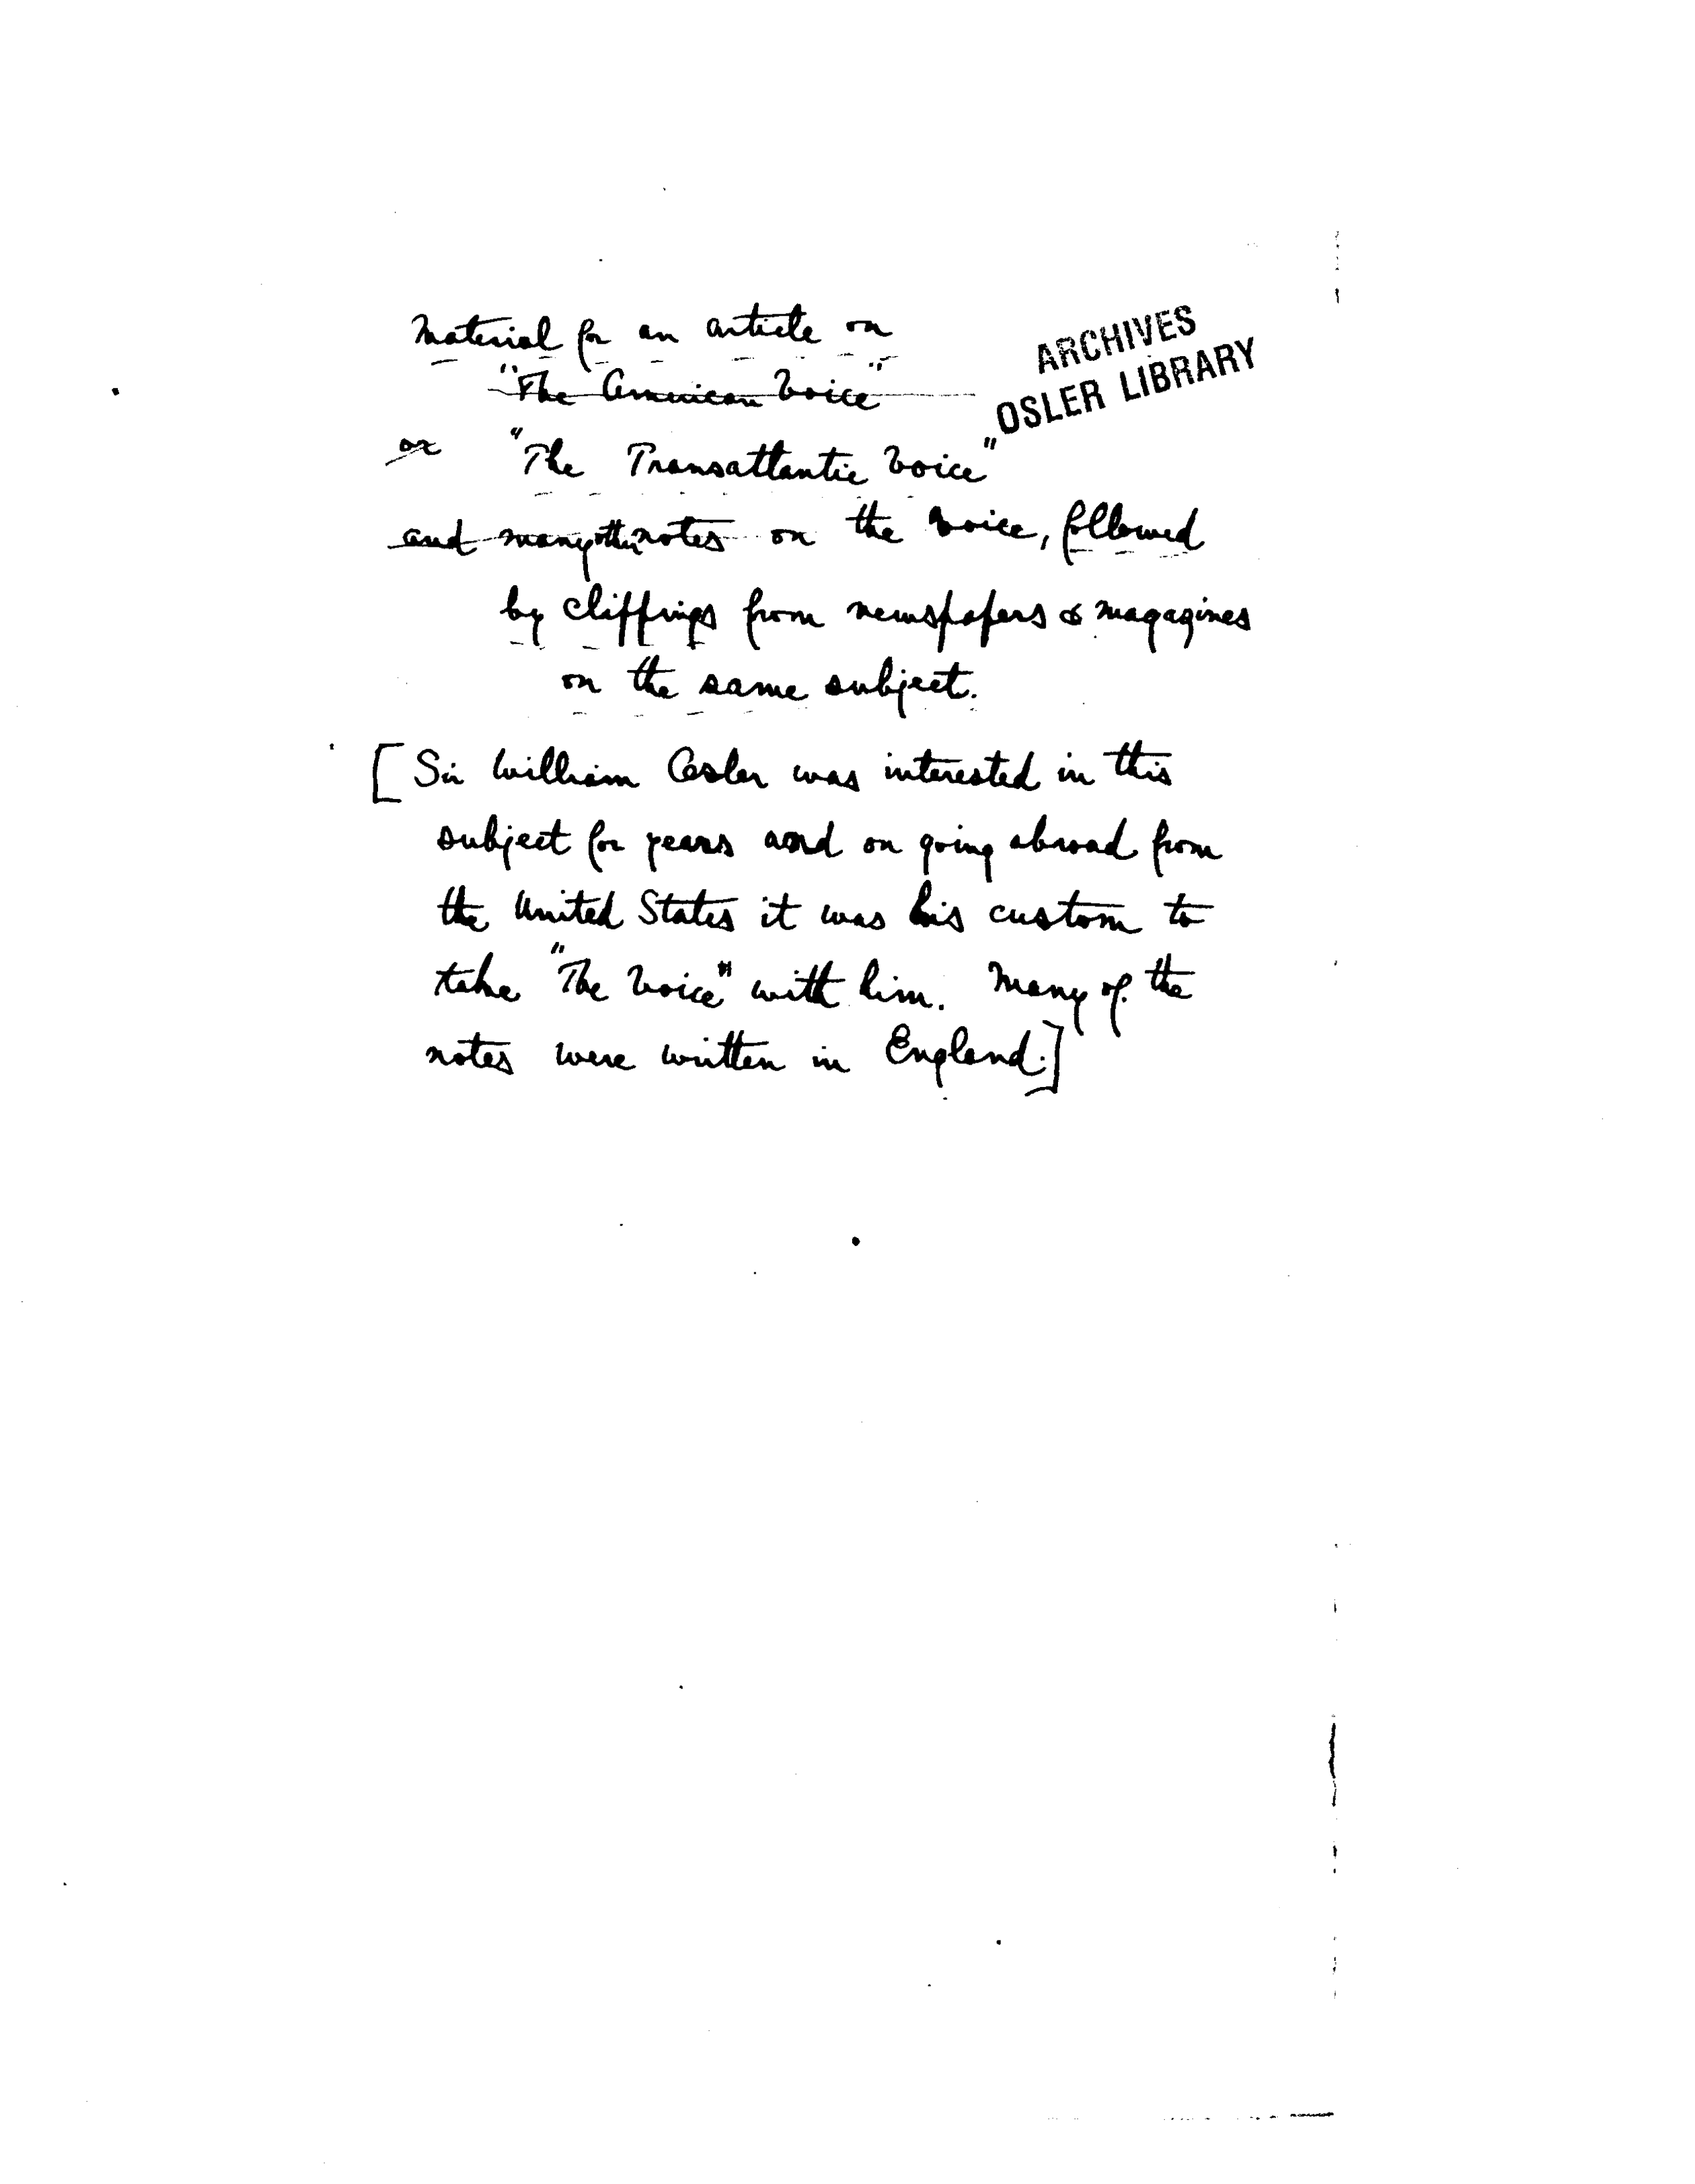 Material for an article on
"The American Voice"
or "The Transatlantic Voice"
and many other notes on the voice, followed
by clippings from newspapers & magazines
on the same subject.
[Sir William Osler was interested in this
subject for years and on going abroad from
the United States it was his custom to
take "The Voice" with him. Many of the
notes were written in England.]
ARCHIVES
OSLER LIBRARY